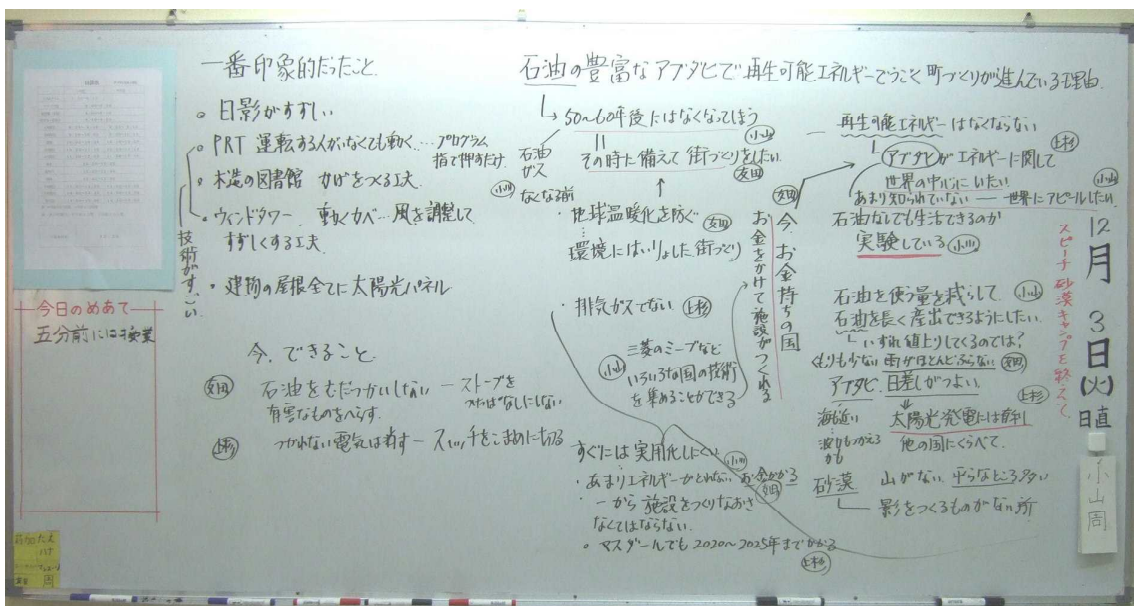 一番印象的だったこと
・日影がすずしい
・PRT 運転する人がいなくても動く…プログラム
指で押すだけ
・木造の図書館 かげをつくる工夫
・ウィンドタワー 動くカベ…風を調整して
すずしくする工夫
技術がすごい
・建物の屋根全てに太陽光パネル
今、できること
石油をむだづかいしない ー ストーブを
つけっぱなしにしない
有害なものをへらす
上杉
つかわない電気は消す ー スイッチをこまめに切る
今日のめあて
五分前には授業
石油の豊富なアブダビで再生可能エネルギーでうごく町づくりが進んでいる理由
50〜60年後にはなくなってしまう
小山
石油
ガス
なくなる前
その時に備えて街づくりをしたい
・地球温暖化を防ぐ
環境にはいりょした街づくり
・排気ガスでない 上杉
小山
三菱のミーブなど
いろいろな国の技術
を集めることができる
今、お金持ちの国
お金をかけて施設がつくれる
すぐには実用化しにくい
・あまりエネルギーがとれない お金かかる
・一から施設をつくりなおさ
なくてはならない
・マスダールでも2020〜2025年までかかる
上杉
再生可能エネルギーはなくならない
上杉
アブダビがエネルギーに関して
世界の中心にいたい
小山
あまり知られていない ー 世界にアピールしたい
石油なしでも生活できるのか
実験している
石油を使う量を減らして 小山
石油を長く産出できるようにしたい
いずれ値上りしてくるのでは?
くもりも少ない 雨がほとんどふらない
アブダビ 日差しがつよい
上杉
海近い
波もつかえる
かも
太陽光発電には有利
他の国にくらべて
砂漠 山がない 平らなところ多い
影をつくるものがない所
12月3日(火)
日直
小山周
スピーチ 砂漠キャンプを終えて